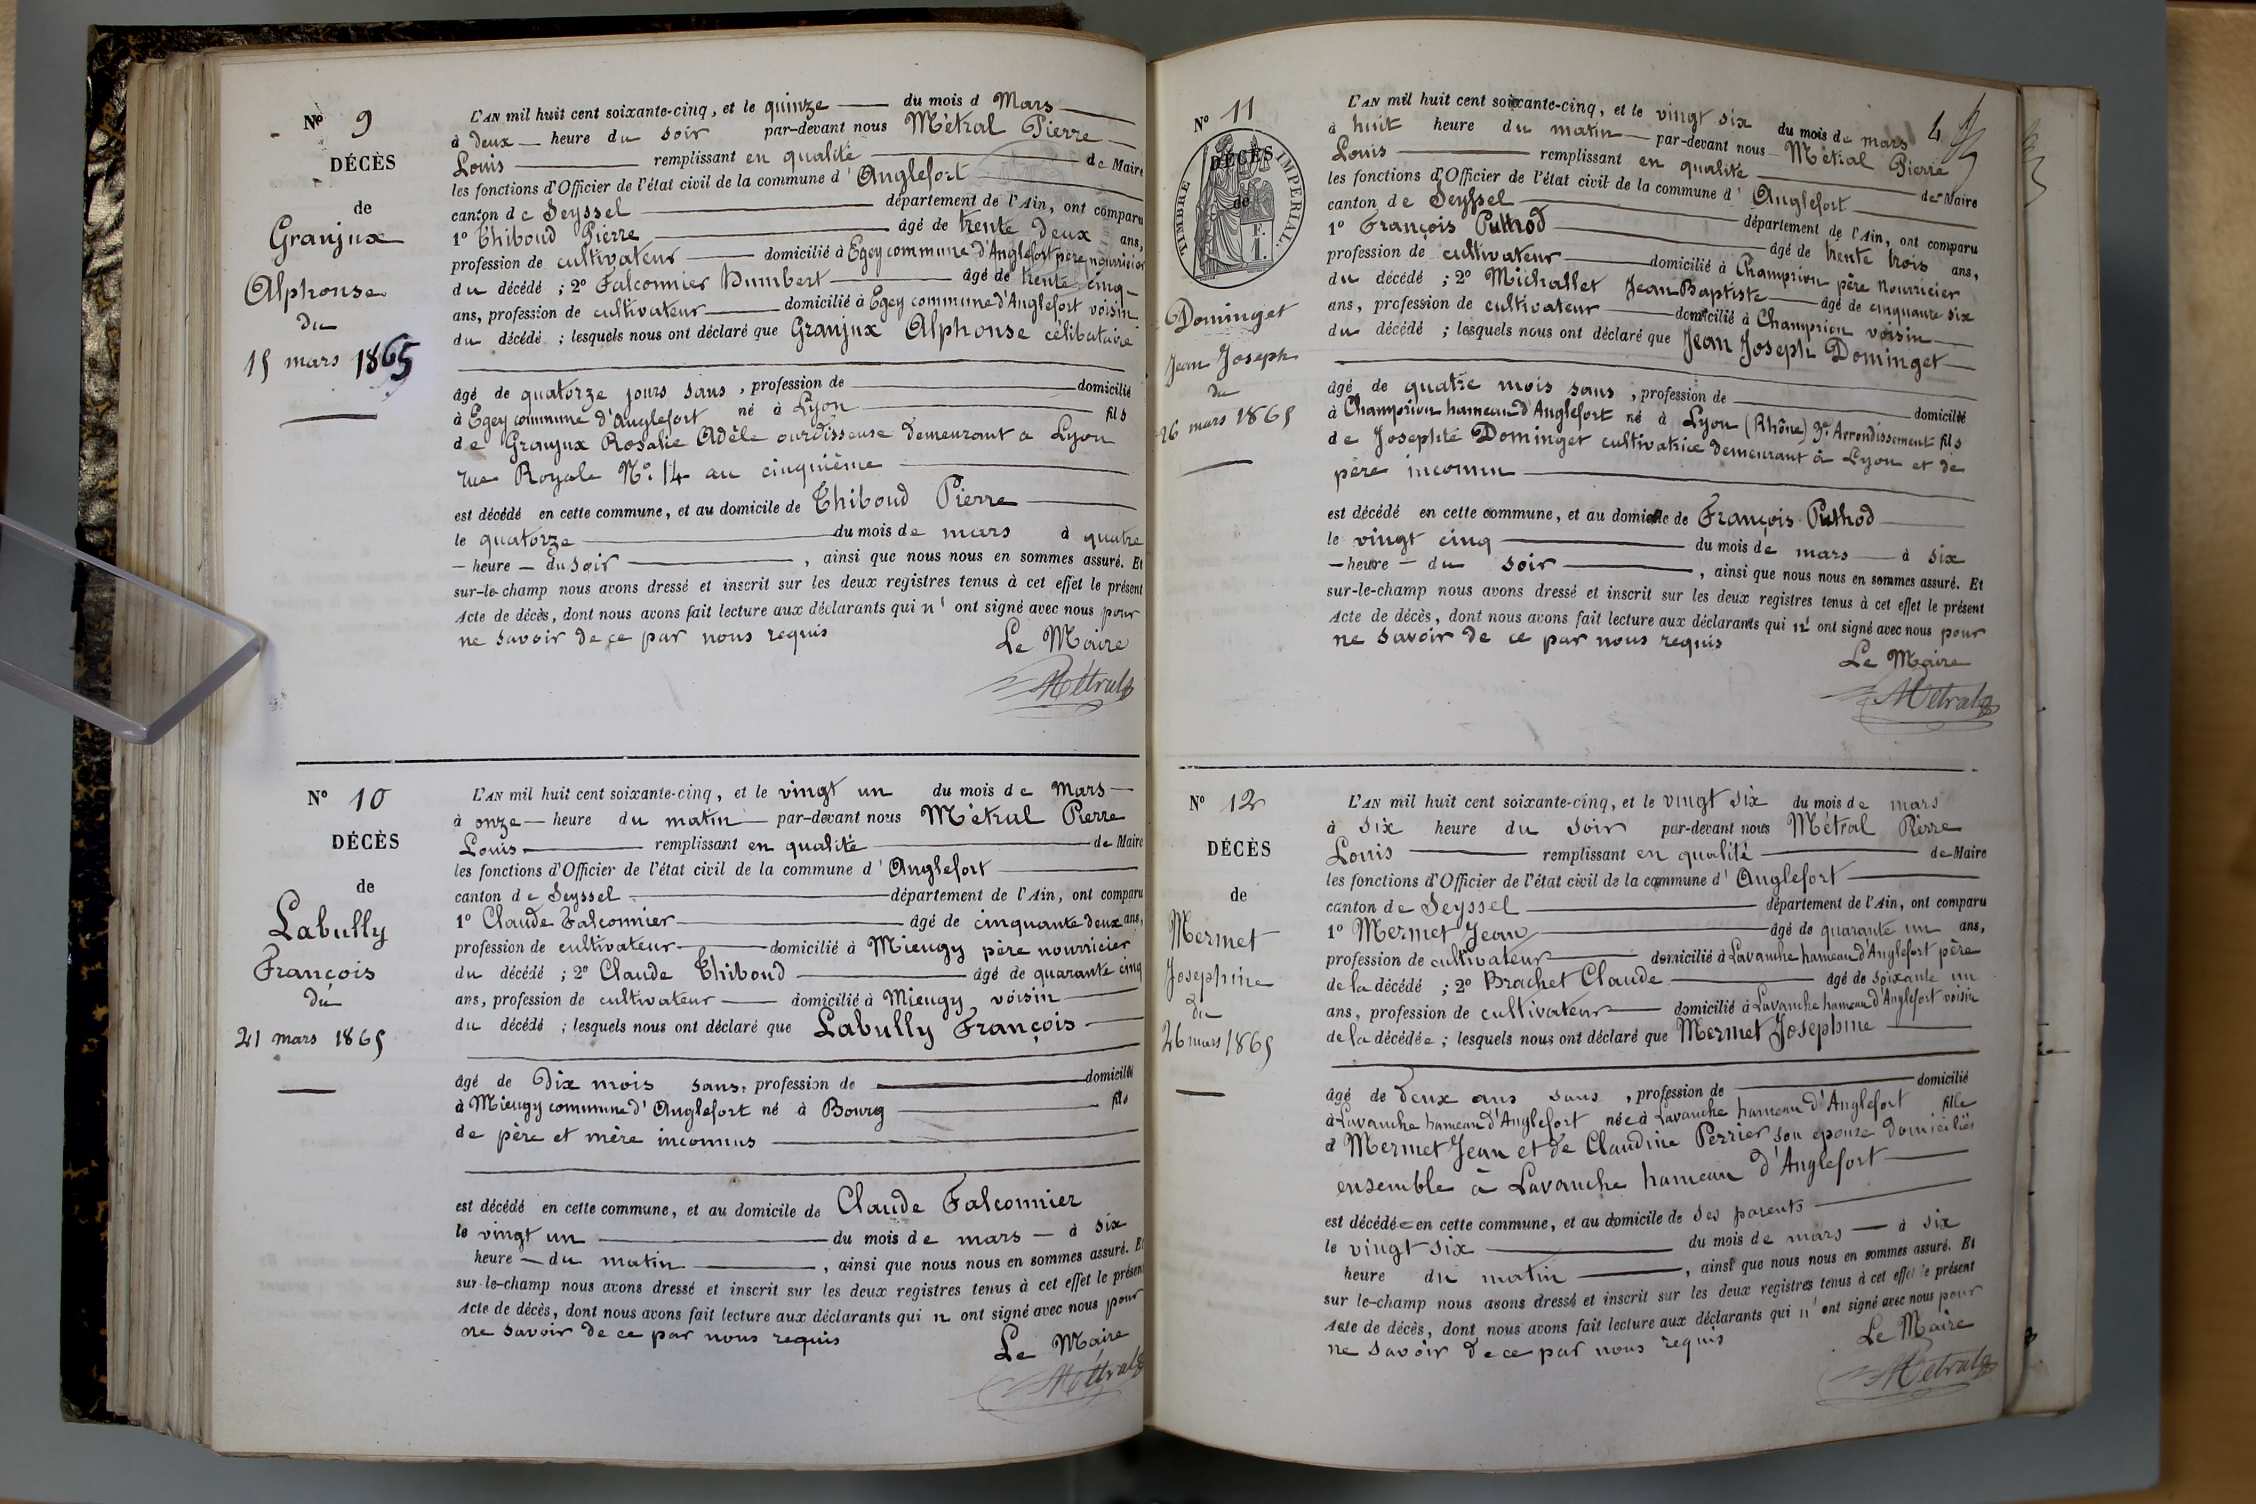 Nº 9
DÉCÈS
de
Granjux
Alphonse
du
15 mars 1865
L'AN mil huit cent soixante-cinq, et le quinze du mois d Mars
à deux heure du soir par-devant nous Métral Pierre
Louis remplissant en qualité de Maire
les fonctions d'Officier de l'état civil de la commune d' Anglefort
canton de Seyssel département de l'Ain, ont comparu
1º Thiboud Pierre âgé de trente deux ans,
profession de cultivateur domicilié à Egey commune d'Anglefort père nourricier
du décédé ; 2º Falconnier Humbert âgé de trente cinq
ans, profession de cultivateur domicilié à Egey commune d'Anglefort voisin
du décédé ; lesquels nous ont déclaré que Granjux Alphonse célibataire
âgé de quatorze jours sans , profession de domicilié
à Egey commune d'Anglefort né à Lyon fils
de Granjux Rosalie Adèle ourdisseuse demeurant à Lyon
rue Royale Nº 14 au cinquième
est décédé en cette commune, et au domicile de Thiboud Pierre
le quatorze du mois de mars à quatre
heure du soir , ainsi que nous nous en sommes assuré. Et
sur-le-champ nous avons dressé et inscrit sur les deux registres tenus à cet effet le présent
Acte de décès, dont nous avons fait lecture aux déclarants qui n' ont signé avec nous pour
ne savoir de ce par nous requis
Le Maire
Métral
Nº 10
DÉCÈS
de
Labully
François
du
21 mars 1865
L'AN mil huit cent soixante-cinq, et le vingt un du mois de Mars
à onze heure du matin par-devant nous Métral Pierre
Louis remplissant en qualité de Maire
les fonctions d'Officier de l'état civil de la commune d' Anglefort
canton de Seyssel département de l'Ain, ont comparu
1º Claude Falconnier âgé de cinquante deux ans,
profession de cultivateur domicilié à Mieugy père nourricier
du décédé ; 2º Claude Thiboud âgé de quarante cinq
ans, profession de cultivateur domicilié à Mieugy voisin
du décédé ; lesquels nous ont déclaré que Labully François
âgé de dix mois sans, profession de domicilié
à Mieugy commune d'Anglefort né à Bourg fils
de père et mère inconnus
est décédé en cette commune, et au domicile de Claude Falconnier
le vingt un du mois de mars à six
heure du matin , ainsi que nous nous en sommes assuré. Et
sur-le-champ nous avons dressé et inscrit sur les deux registres tenus à cet effet le présent
Acte de décès, dont nous avons fait lecture aux déclarants qui n ont signé avec nous pour
ne savoir de ce par nous requis
Le Maire
Métral
Nº 11
DÉCÈS
de
TIMBRE IMPERIAL.
F.
1.
Dominget
Jean Joseph
du
26 mars 1865
4
L'AN mil huit cent soixante-cinq, et le vingt six du mois de mars
à huit heure du matin par-devant nous Métral Pierre
Louis remplissant en qualité de Maire
les fonctions d'Officier de l'état civil de la commune d' Anglefort
canton de Seyssel département de l'Ain, ont comparu
1º François Puthod âgé de trente trois ans,
profession de cultivateur domicilié à Champriou père nourricier
du décédé ; 2º Michallet Jean Baptiste âgé de cinquante six
ans, profession de cultivateur domicilié à Champriou voisin
du décédé ; lesquels nous ont déclaré que Jean Joseph Dominget
âgé de quatre mois sans , profession de domicilié
à Champriou hameau d'Anglefort né à Lyon (Rhône) 3e Arrondissement fils
de Josephte Dominget cultivatrice demeurant à Lyon et de
père inconnu
est décédé en cette commune, et au domicile de François Puthod
le vingt cinq du mois de mars à six
heure du soir , ainsi que nous nous en sommes assuré. Et
sur-le-champ nous avons dressé et inscrit sur les deux registres tenus à cet effet le présent
Acte de décès, dont nous avons fait lecture aux déclarants qui n' ont signé avec nous pour
ne savoir de ce par nous requis
Le Maire
Métral
Nº 12
DÉCÈS
de
Mermet
Josephine
du
26 mars 1865
L'AN mil huit cent soixante-cinq, et le vingt six du mois de mars
à six heure du soir par-devant nous Métral Pierre
Louis remplissant en qualité de Maire
les fonctions d'Officier de l'état civil de la commune d' Anglefort
canton de Seyssel département de l'Ain, ont comparu
1º Mermet Jean âgé de quarante un ans,
profession de cultivateur domicilié à Lavanche hameau d'Anglefort père
de la décédé ; 2º Brachet Claude âgé de soixante un
ans, profession de cultivateur domicilié à Lavanche hameau d'Anglefort voisin
de la décédée ; lesquels nous ont déclaré que Mermet Josephine
âgé de deux ans sans , profession de domicilié
à Lavanche hameau d'Anglefort née à Lavanche hameau d'Anglefort fille
d Mermet Jean et de Claudine Perrier son épouse domiciliés
ensemble à Lavanche hameau d'Anglefort
est décédée en cette commune, et au domicile de ses parents
le vingt six du mois de mars à six
heure du matin , ainsi que nous nous en sommes assuré. Et
sur le-champ nous avons dressé et inscrit sur les deux registres tenus à cet effet le présent
Acte de décès, dont nous avons fait lecture aux déclarants qui n' ont signé avec nous pour
ne savoir de ce par nous requis
Le Maire
Métral